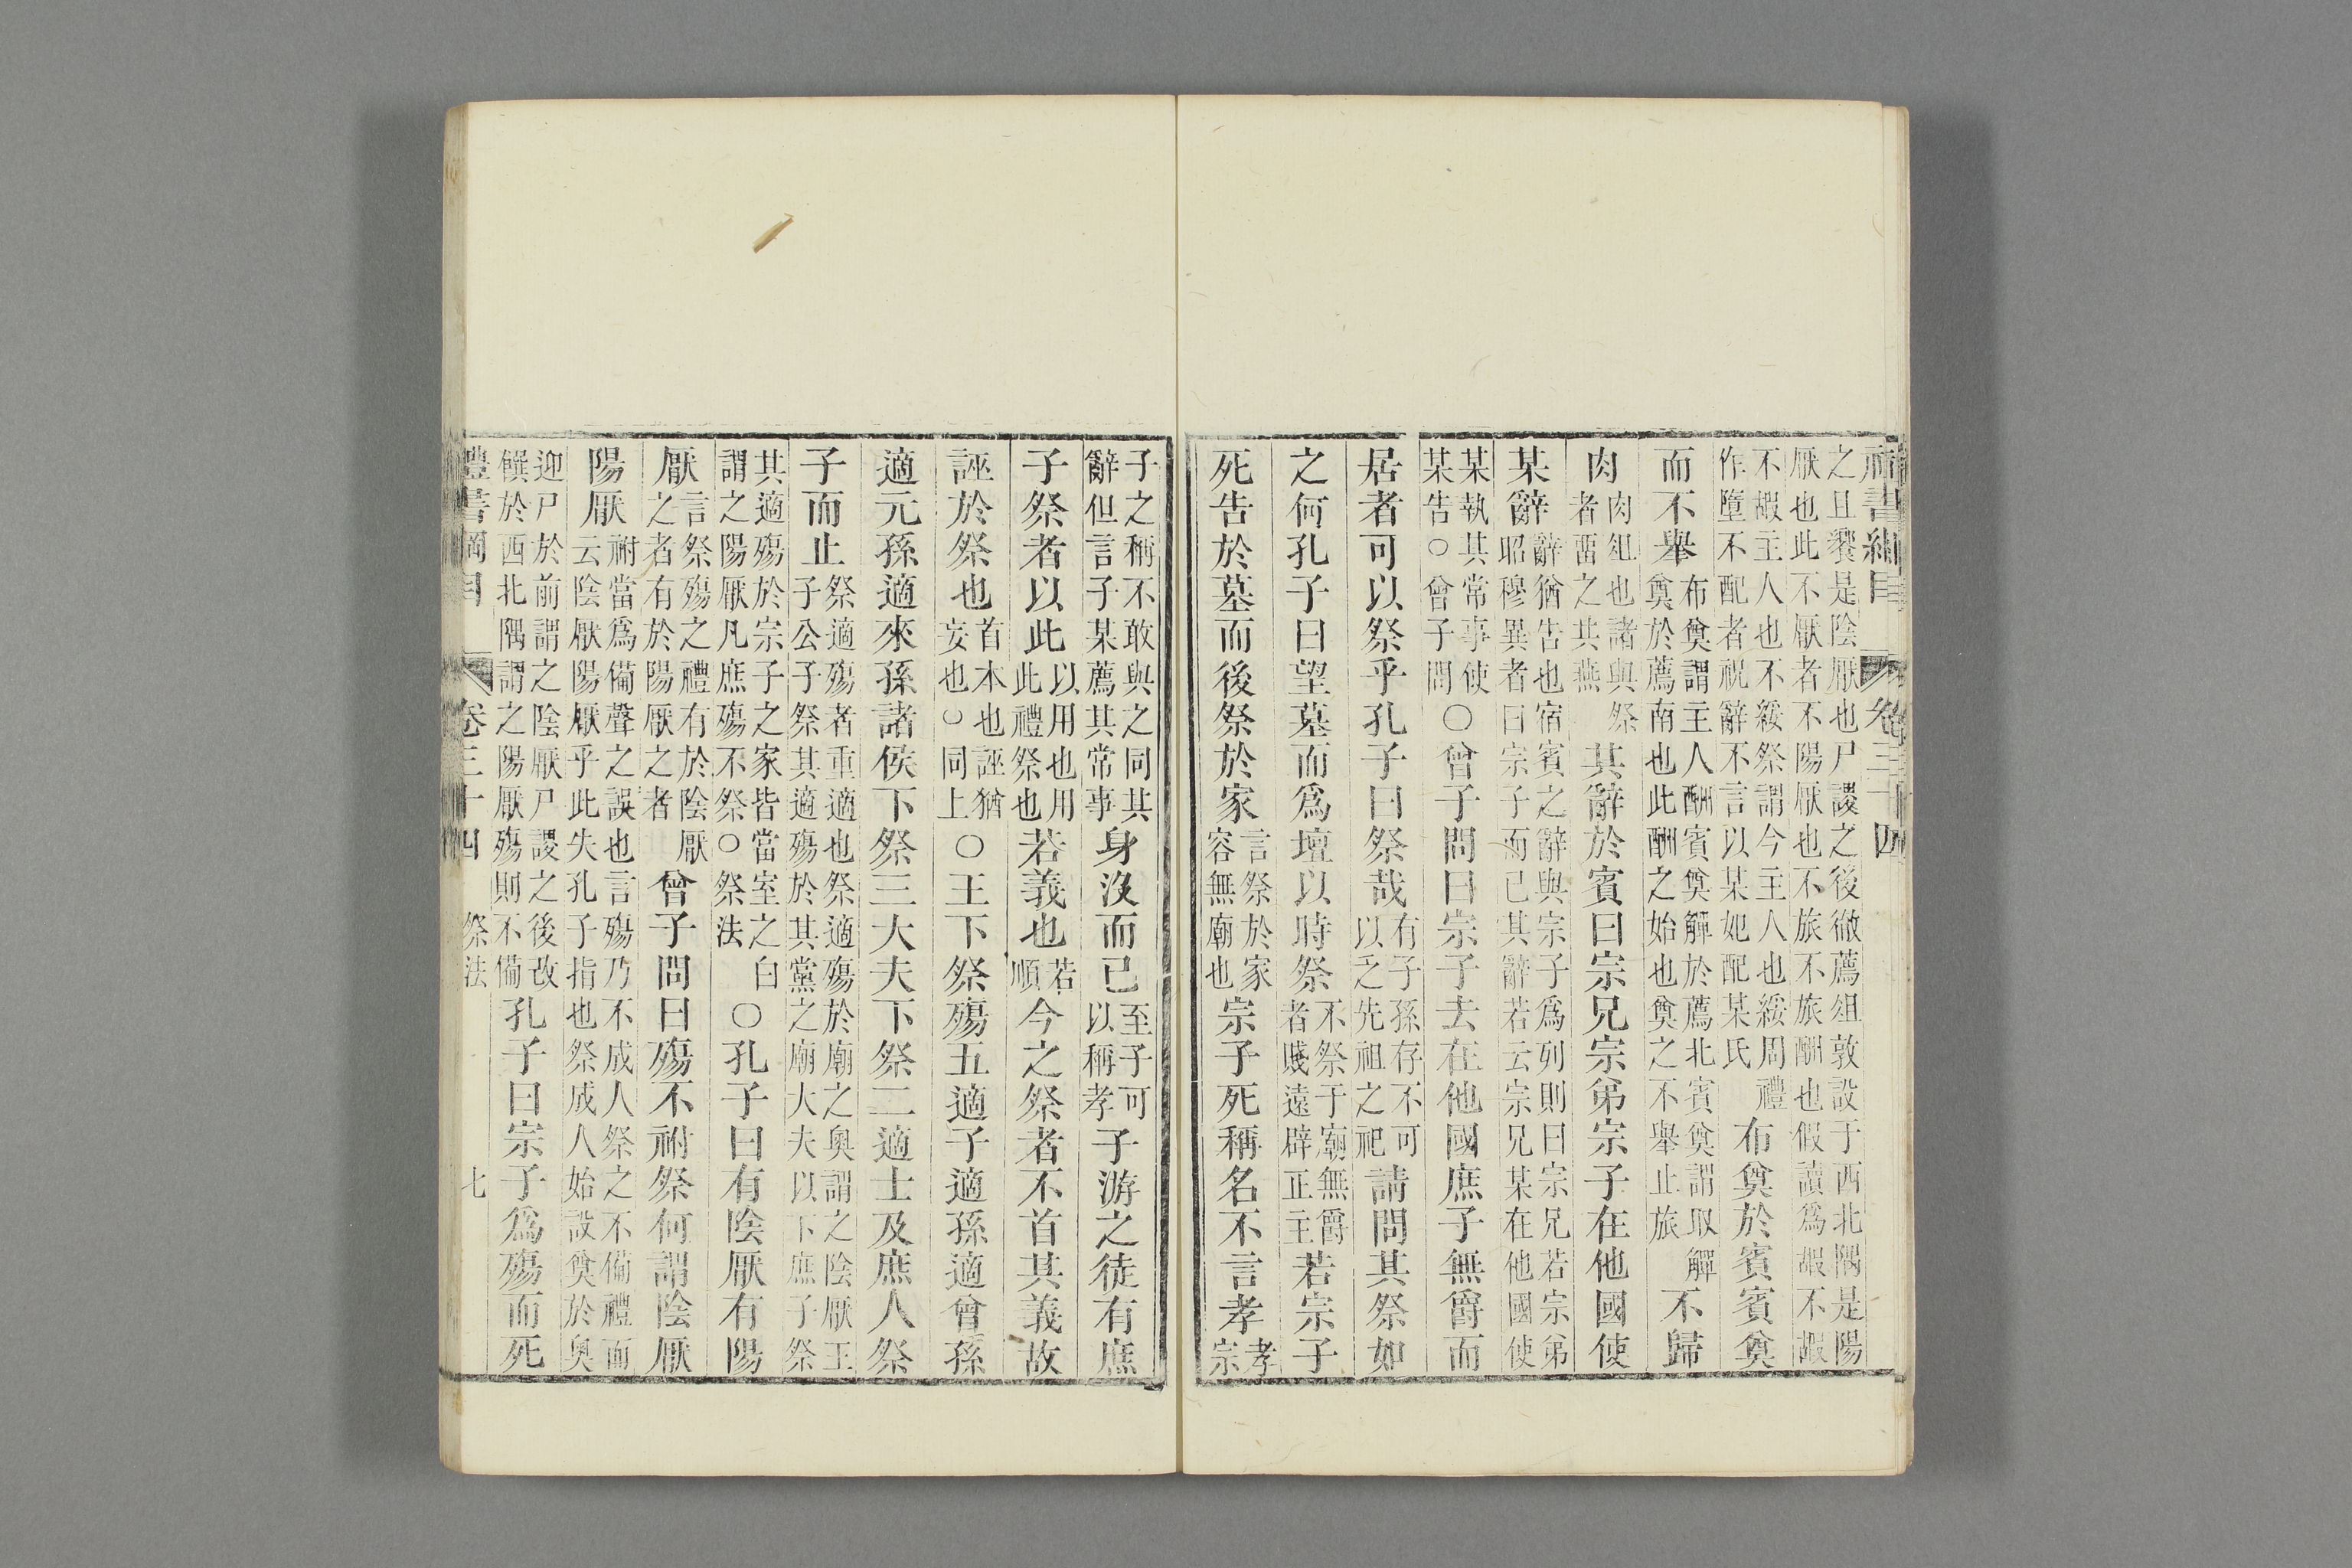 禮書綱目 卷三十四
之且饗是陰厭也尸謖之後徹薦俎敦設于西北隅是陽
厭也此不厭者不陽厭也不旅不旅酬也假讀爲嘏不嘏
不嘏主人也不綏祭謂今主人也綏周禮
作墮不配者祝辭不言以某妃配某氏
布奠於賓賓奠
而不舉
布奠謂主人酬賓奠觶於薦北賓奠謂取觶
奠於薦南也此酬之始也奠之不舉止旅
不歸
肉
肉俎也諸與祭
者畱之共燕
其辭於賓曰宗兄宗弟宗子在他國使
某辭
辭猶告也宿賓之辭與宗子爲列則曰宗兄若宗弟
昭穆異者曰宗子而已其辭若云宗兄某在他國使
某執其常事使
某告○曾子問
○曾子問曰宗子去在他國庶子無爵而
居者可以祭乎孔子曰祭哉
有子孫存不可
以乏先祖之祀
請問其祭如
之何孔子曰望墓而爲壇以時祭
不祭于廟無爵
者賤遠辟正主
若宗子
死告於墓而後祭於家
言祭於家
容無廟也
宗子死稱名不言孝
孝
宗
子之稱不敢與之同其
辭但言子某薦其常事
身沒而已
至子可
以稱孝
子游之徒有庶
子祭者以此
以用也用
此禮祭也
若義也
若
順
今之祭者不首其義故
誣於祭也
首本也誣猶
妄也○同上
○王下祭殤五適子適孫適曾孫
適元孫適來孫諸侯下祭三大夫下祭二適士及庶人祭
子而止
祭適殤者重適也祭適殤於廟之奧謂之陰厭王
子公子祭其適殤於其黨之廟大夫以下庶子祭
其適殤於宗子之家皆當室之白
謂之陽厭凡庶殤不祭○祭法
○孔子曰有陰厭有陽
厭
言祭殤之禮有於陰厭
之者有於陽厭之者
曾子問曰殤不祔祭何謂陰厭
陽厭
祔當爲備聲之誤也言殤乃不成人祭之不備禮而
云陰厭陽厭乎此失孔子指也祭成人始設奠於奧
迎尸於前謂之陰厭尸謖之後改
饌於西北隅謂之陽厭殤則不備
孔子曰宗子爲殤而死
禮書綱目 卷三十四 祭法 七